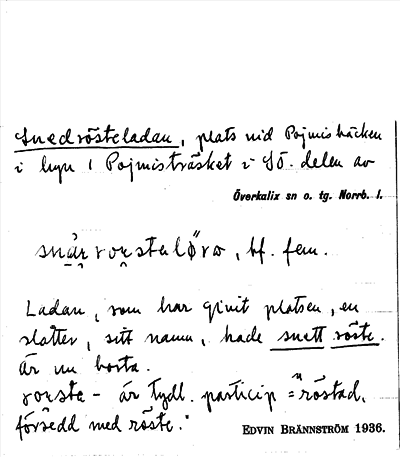 Snedrösteladan, plats vid Pojmisbäcken
i byn 1 Pojmisträsket i SÖ. delen av
Överkalix sn o. tg. Norrb. l.
bf. fem.
Ladan, som har givit platsen, en
slåtter, sitt namn, hade snett röste.
Är nu borta.
är tydl. particip = "röstad,
försedd med röste."
EDVIN BRÄNNSTRÖM 1936.